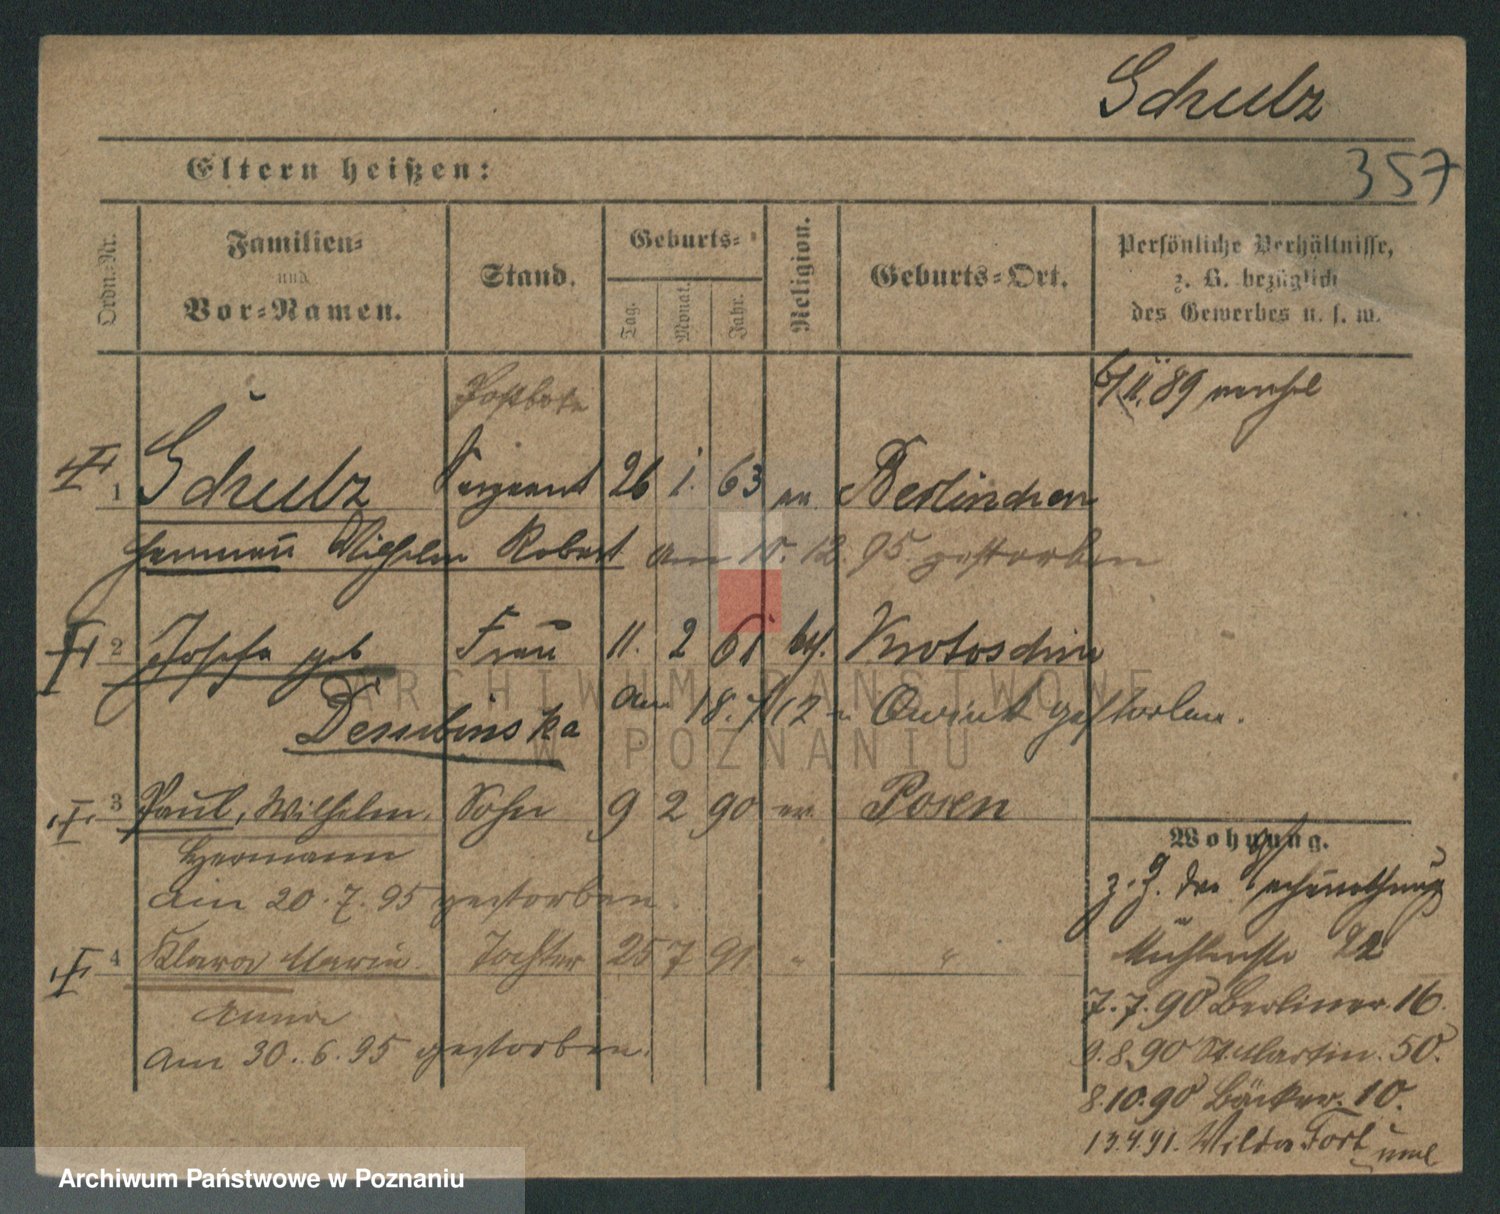 Schulz
357
Eltern heißen:
Ordn.-Nr.
Familien-
und
Vor-Namen.
Stand.
Geburts-
Tag.
Monat.
Jahr.
Religion.
Geburts-Ort.
Persönliche Verhältnisse,
z. B. bezüglich
des Gewerbes u. s. w.
Postbote
6/11. 89
1 Schulz Sergeant 26 1. 63 ev. Berlinchen
Hermann Wilhelm Robert am 10. 12. 95 gestorben
2 Josefa geb Frau 11. 2 61 kth. Krotoschin
Dembinska am 18. 7 12 in Owinsk gestorben.
3 Paul, Wilhelm, Sohn 9 2 90 ev. Posen
Hermann
am 20. 7. 95 gestorben.
4 Klara Maria Tochter 25 7 91 " "
Anna
am 30. 6. 95 gestorben.
Wohnung.
z. Z. der
Mühlenstr 22
7. 7. 90 Berliner. 16.
9. 8. 90 St. Martin. 50.
8. 10. 90 Bäcker. 10.
13. 4. 91. Wilda Fort
ARCHIWUM PAŃSTWOWE
W POZNANIU
Archiwum Państwowe w Poznaniu